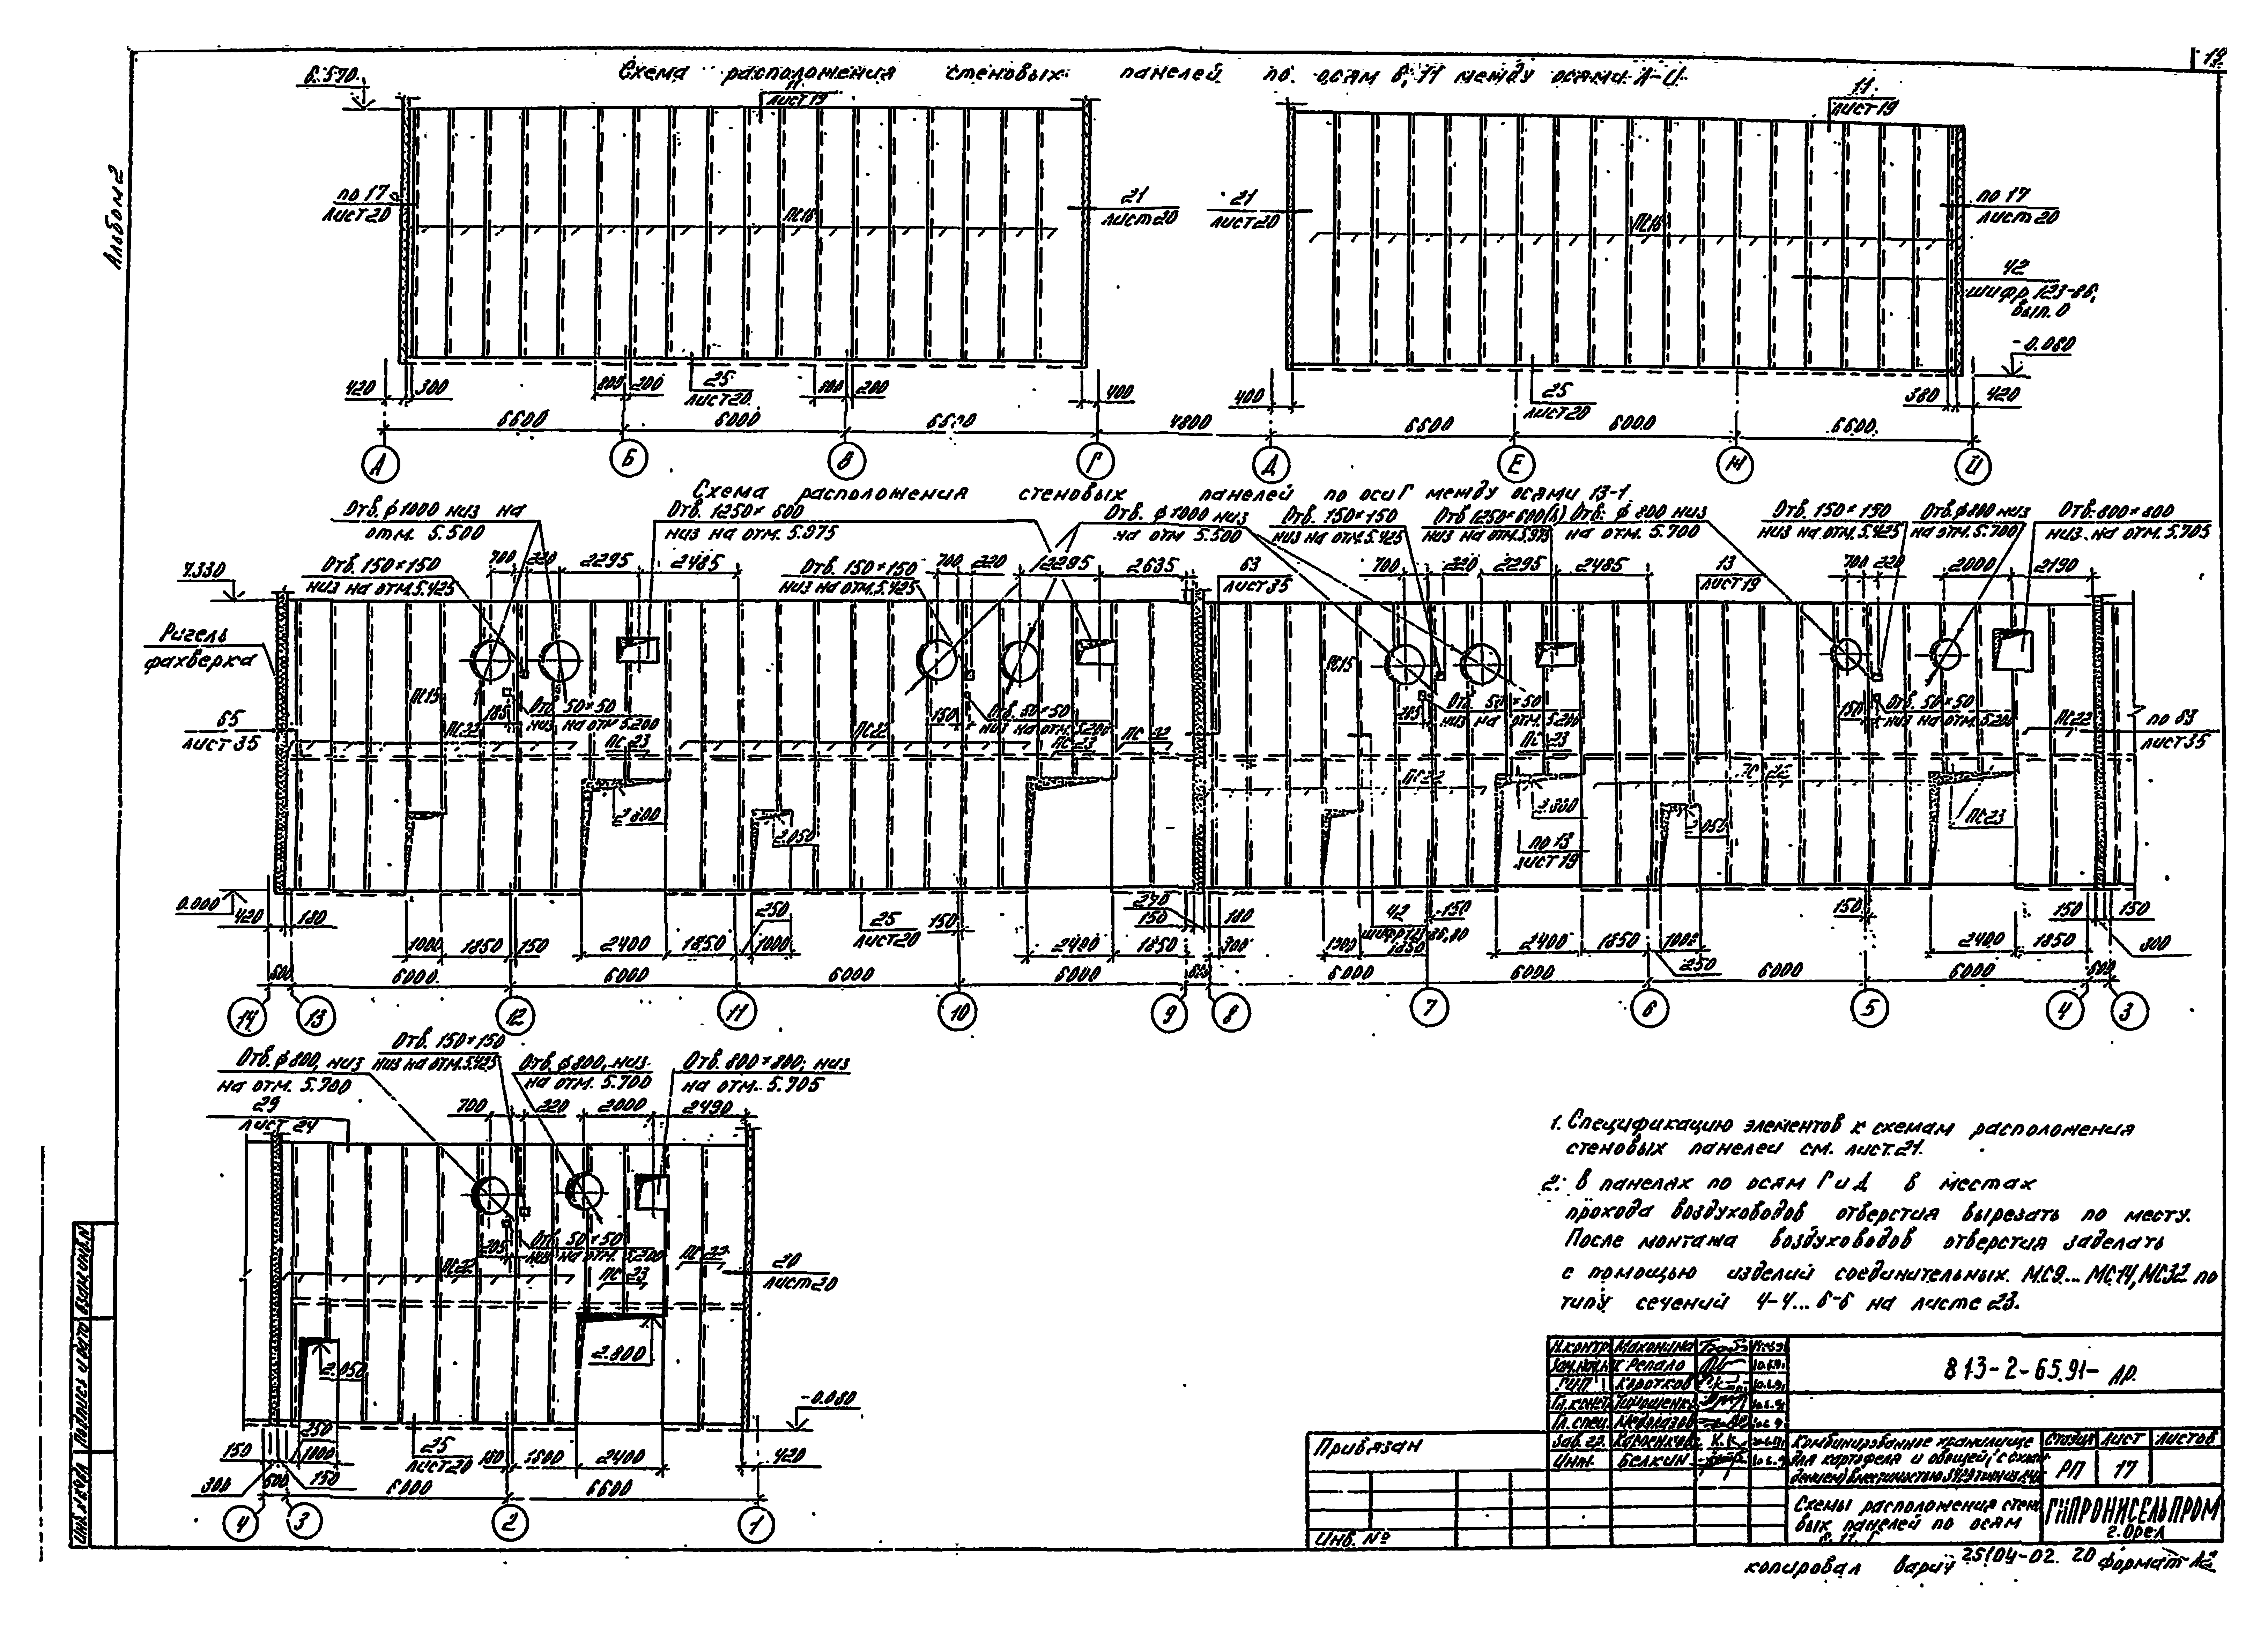 19
Альбом 2
Схема расположения стеновых панелей по осям 6, 11 между осями А-И
6.570
11
лист 19
11
лист 19
по 17
лист 20
ПС16
21
лист 20
21
лист 20
ПС16
по 17
лист 20
42
шифр 123-88,
вып. 0
-0.080
420 300 800 200
25
лист 20
800 200 400
400
25
лист 20
380 420
6600 6000 6600 4800 6600 6000 6600
А Б В Г Д Е Ж И
Схема расположения стеновых панелей по оси Г между осями 13-1
Отв. ф1000 низ на
отм. 5.500
Отв. 1250×600
низ на отм. 5.975
Отв. ф1000 низ
на отм 5.500
Отв. 150×150
низ на отм. 5.425
Отв 1250×600(h)
низ на отм. 5.975
Отв. ф 800 низ
на отм. 5.700
Отв. 150×150
низ на отм. 5.425
Отв. ф800 низ
на отм. 5.700
Отв. 800×800
низ на отм. 5.705
Отв. 150×150
низ на отм. 5.425
700 220 2295 2485
Отв. 150×150
низ на отм. 5.425
700 220 2295 2635
63
лист 35
700 220 2295 2485
13
лист 19
700 220 2000 2190
7.330
Ригель
фахверка
65
лист 35
ПС15
ПС22
185
Отв. 50×50
низ на отм 5.200
ПС23
ПС22
150
Отв. 50×50
низ на отм. 5.200
ПС23
ПС22
ПС15
205
Отв. 50×50
низ на отм. 5.200
ПС23
ПС22
150
Отв. 50×50
низ на отм. 5.200
ПС22
по 63
лист 35
2.800
2.050
2.800
по 13
лист 19
2.050
ПС23
0.000
420 180
1000 1850 150 2400 1850 250 1000
25
лист 20
150 2400 1850
290
150 180
300
42
150
1000 1850 2400 1850 1000 250 150 2400 1850 150 150 300
600 6000 6000 6000 6000 600 6000 6000 6000 6000 600
14 13 12 11 10 9 8 7 6 5 4 3
Отв. ф800, низ
на отм. 5.700
Отв. 150×150
низ на отм. 5.425
Отв. ф800, низ
на отм. 5.700
Отв. 800×800; низ
на отм. 5.705
29
лист 24
700 220 2000 2490
205
Отв. 50×50
низ на отм. 5.200
ПС22
ПС23
ПС22
20
лист 20
2.050
2.800
-0.080
150 250 1000
300 600 150
25
лист 20
2400 420
6000 6600
4 3 2 1
1. Спецификацию элементов к схемам расположения
стеновых панелей см. лист 21.
2. В панелях по осям Г и Д в местах
прохода воздуховодов отверстия вырезать по месту.
После монтажа воздуховодов отверстия заделать
с помощью изделий соединительных МС9...МС14, МС32 по
типу сечений 4-4...6-6 на листе 23.
Н.контр Махонина
Репало
ГИП Коротков
Гл.констр Тимошенко
Гл. спец.
Зав. гр.
Инж. Белкин
813-2-65.91- АР.
Привязан
Инв. №
Комбинированное хранилище
для картофеля и овощей
Стадия Лист Листов
РП 17
Схемы расположения стено
вых панелей по осям
6, 11, Г
ГИПРОНИСЕЛЬПРОМ
г. Орел
Инв. № подл. Подпись и дата Взам. инв. №
копировал 25104-02 20 формат А2